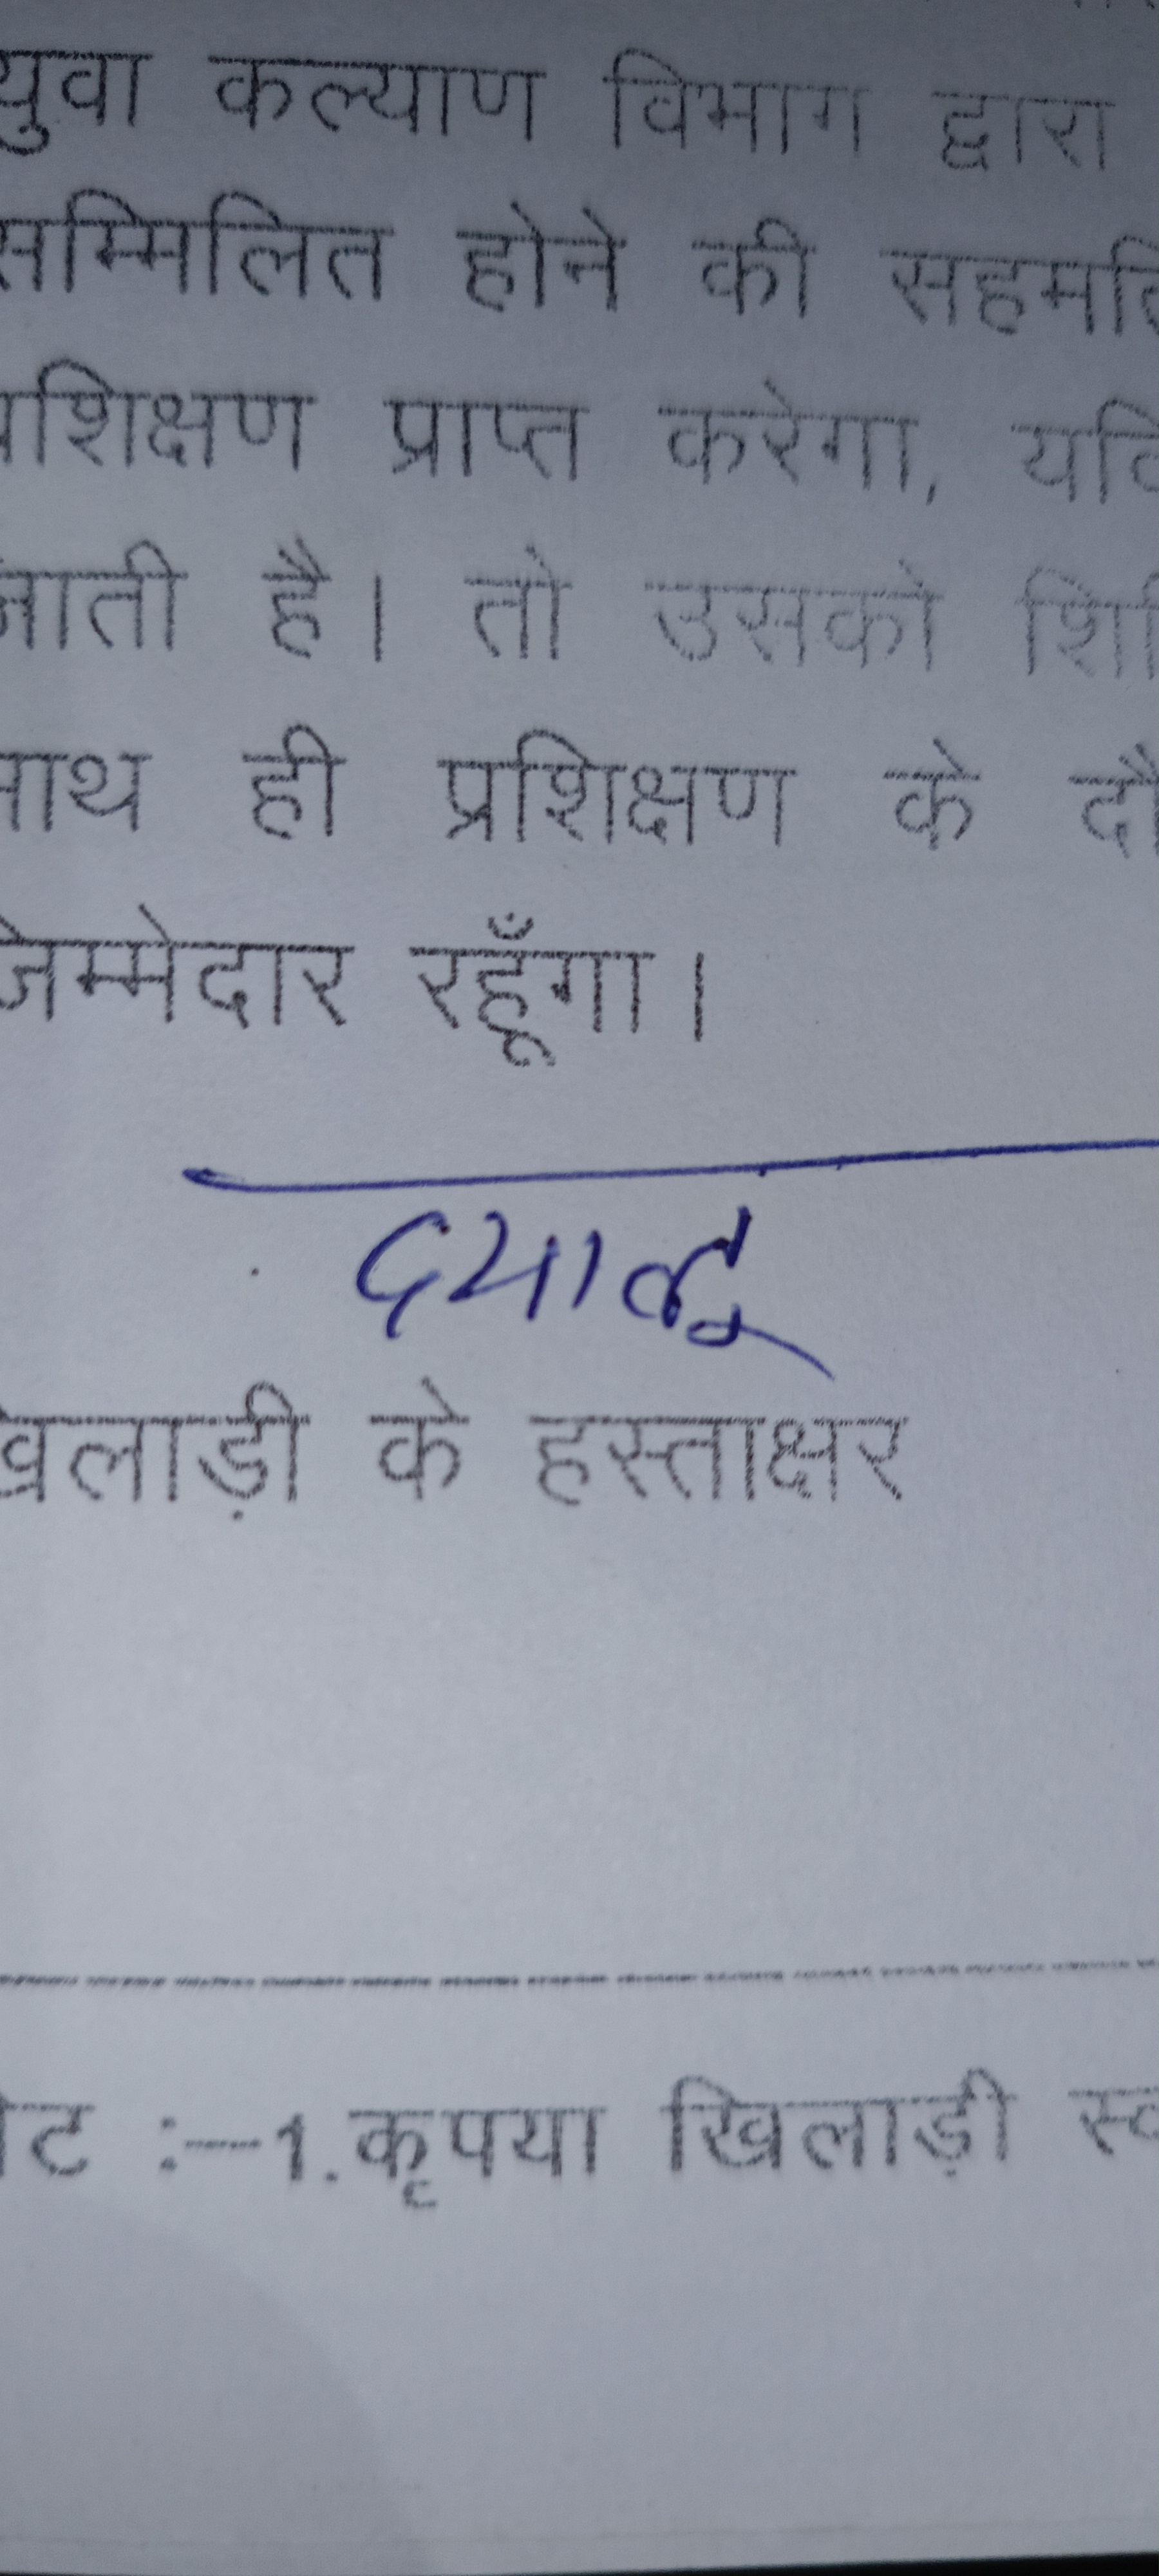 युवा कल्याण विभाग द्वारा
सम्मिलित होने की
प्रशिक्षण प्राप्त करेगा,
जाती है। तो उसको
साथ ही प्रशिक्षण के
जिम्मेदार रहूँगा।
दयालू
खिलाड़ी के हस्ताक्षर
नोट :–1.कृपया खिलाड़ी